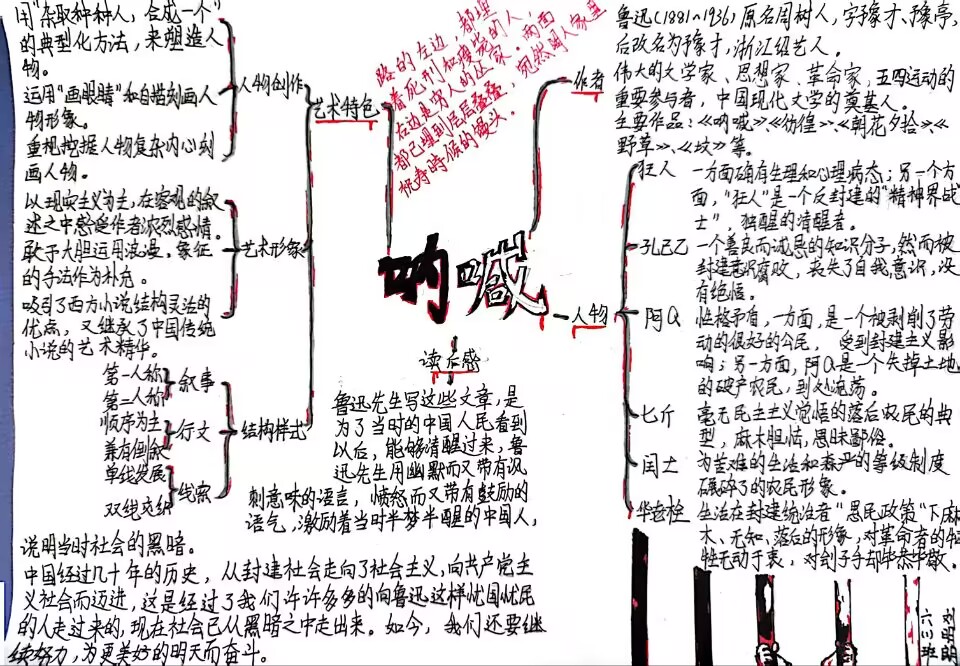 用“杂取种种人，合成一个”
的典型化方法，来塑造人
物。
运用“画眼睛”和白描刻画人
物形象。
重视挖掘人物复杂内心刻
画人物。
人物创作
艺术特色
以现实主义为主，在客观的叙
述之中感受作者浓烈感情。
敢于大胆运用浪漫、象征
的手法作为补充。
吸引了西方小说结构灵活的
优点，又继承了中国传统
小说的艺术精华。
艺术形象
第一人称
第二人称
叙事
顺序为主
兼有倒叙
行文
单线发展
双线交织
线索
结构样式
路的左边，都埋
着死刑和瘐毙的人，
右边是穷人的丛冢。两面
都已埋到层层叠叠，宛然阔人家里
祝寿时候的馒头。
呐喊
作者
鲁迅（1881~1936）原名周树人，字豫才、豫亭，
后改名为豫才，浙江绍兴人。
伟大的文学家、思想家、革命家，五四运动的
重要参与者，中国现代文学的奠基人。
主要作品：《呐喊》、《彷徨》、《朝花夕拾》、《
野草》、《坟》等。
人物
狂人
一方面确有生理和心理病态；另一个方
面，“狂人”是一个反封建的“精神界战
士”，独醒的清醒者。
孔己乙
一个善良而诚恳的知识分子，然而被
封建意识腐败，丧失了自我意识，没
有绝悟。
阿Q
性格矛盾，一方面，是一个被剥削了劳
动的很好的公民，受到封建主义影
响；另一方面，阿Q是一个失掉土地
的破产农民，到处流荡。
七斤
毫无民主主义觉悟的落后农民的典
型，麻木胆怯，愚昧鄙俗。
闰土
为苦难的生活和森严的等级制度
碾碎了的农民形象。
华老栓
生活在封建统治者“愚民政策”下麻
木、无知、落后的形象，对革命者的牺
牲无动于衷，对刽子手却毕恭毕敬。
读后感
鲁迅先生写这些文章，是
为了当时的中国人民看到
以后，能够清醒过来，鲁
迅先生用幽默而又带有讽
刺意味的语言，愤怒而又带有鼓励的
语气，激励着当时半梦半醒的中国人，
说明当时社会的黑暗。
中国经过几十年的历史，从封建社会走向了社会主义，向共产党主
义社会而迈进，这是经过了我们许许多多的向鲁迅这样忧国忧民
的人走过来的，现在社会已从黑暗之中走出来。如今，我们还要继
续努力，为更美好的明天而奋斗。
六三班